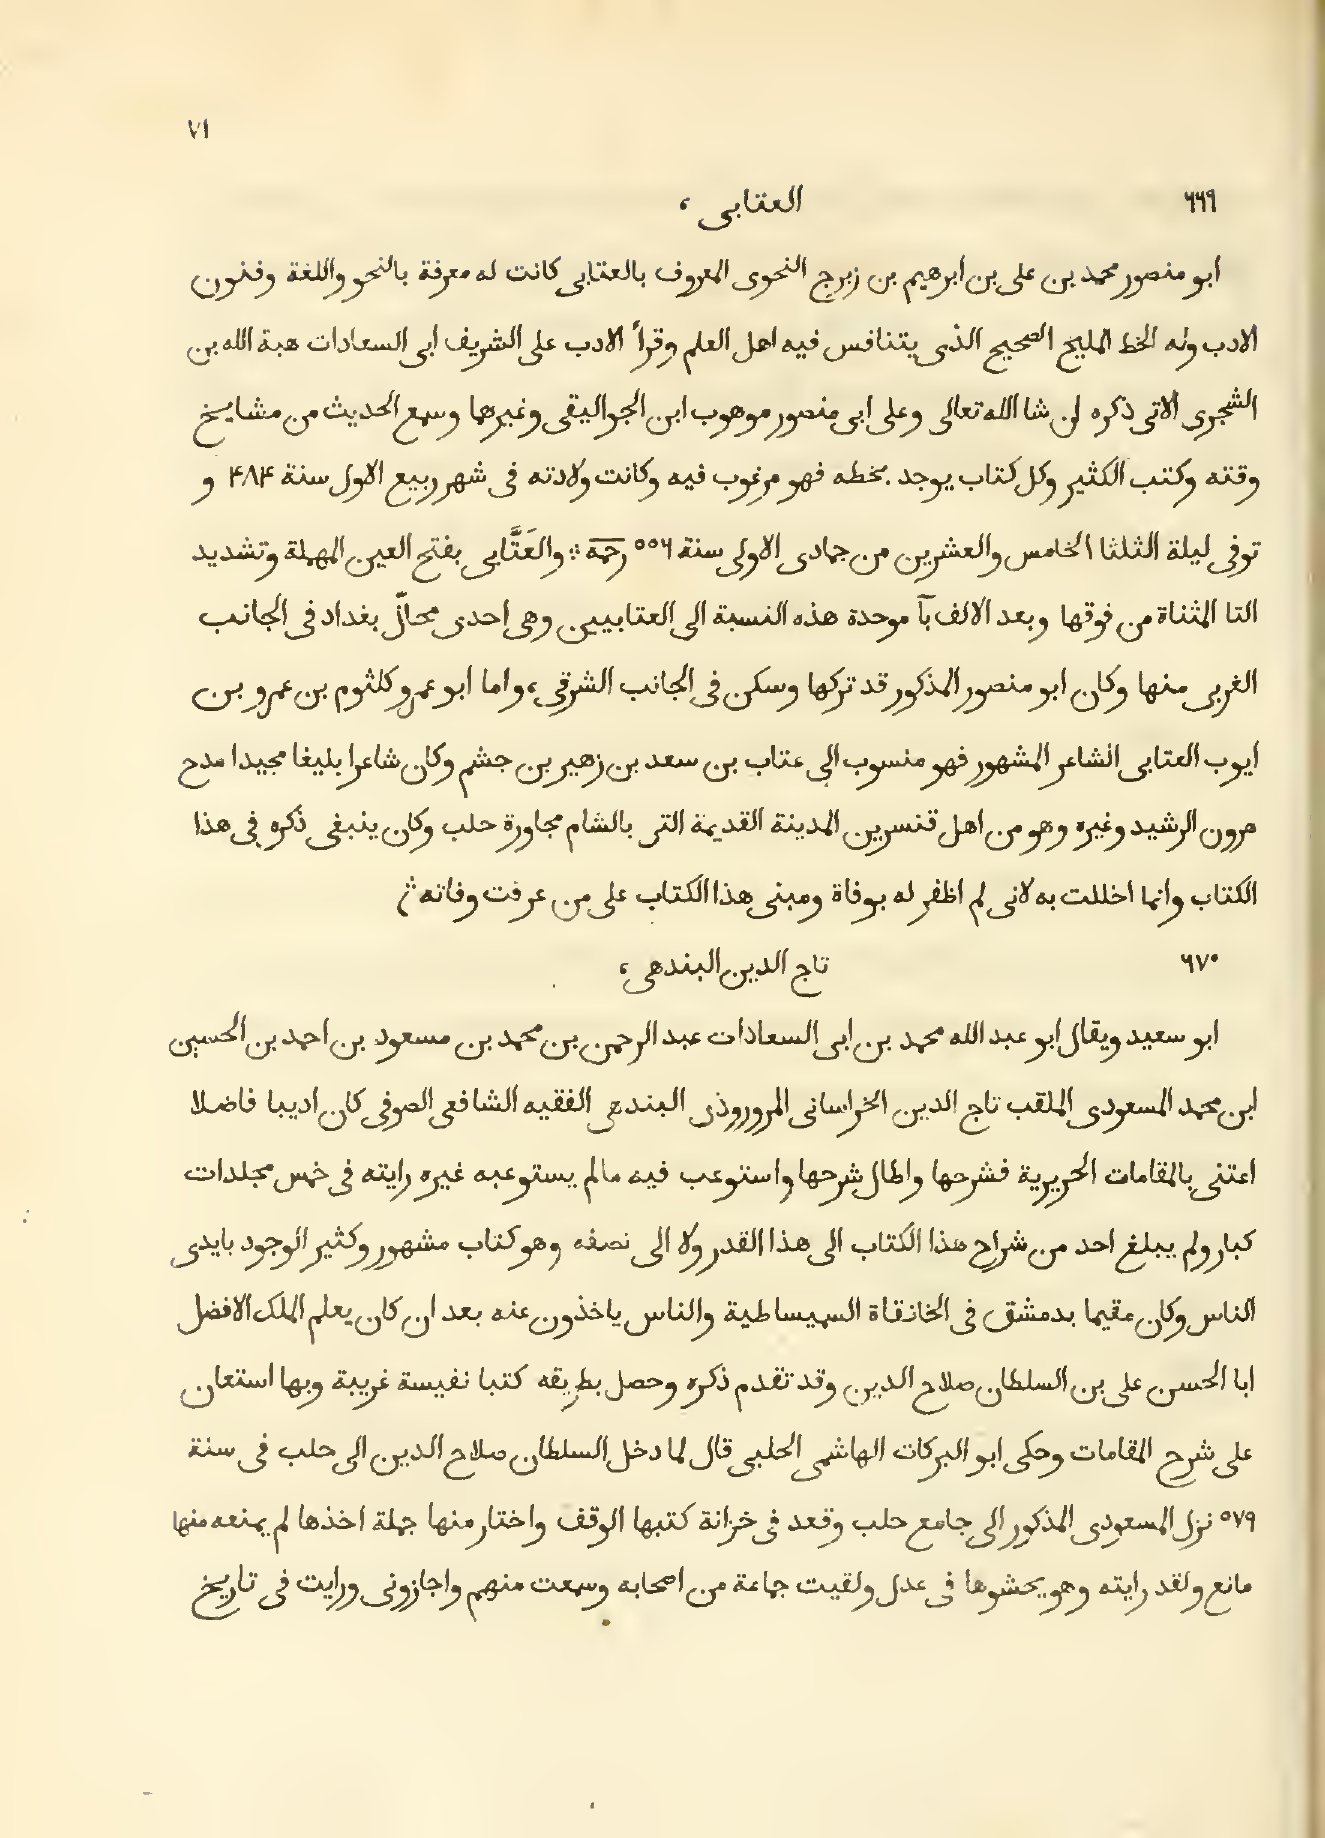 ٧١
٦٦٩ العتابى ،
ابو منصور محمد بن على بن ابرهيم بن زبرج النحوى المعروف بالعتابى كانت له معرفة بالنحو واللغة وفنون
الادب وله الخط المليح الصحيح الذى يتنافس فيه اهل العلم وقرأ الادب على الشريف ابى السعادات هبة الله بن
الشجرى الاتى ذكره ان شا الله تعالى وعلى ابى منصور موهوب ابن الجواليقى وغيرها وسمع الحديث من مشايخ
وقته وكتب الكثير وكل كتاب يوجد بخطه فهو مرغوب فيه وكانت ولادته فى شهر ربيع الاول سنة ۴۸۴ و
توفى ليلة الثلثا الخامس والعشرين من جمادى الاولى سنة ٥٥٦ رحمه ؞ والعَتَّابى بفتح العين المهملة وتشديد
التا المثناة من فوقها وبعد الالف بآ موحدة هذه النسبة الى العتابيين وهى احدى محالّ بغداد فى الجانب
الغربى منها وكان ابو منصور المذكور قد تركها وسكن فى الجانب الشرقى ، واما ابو عمرو كلثوم بن عمرو بن
ايوب العتابى الشاعر المشهور فهو منسوب الى عتاب بن سعد بن زهير بن جشم وكان شاعرا بليغا مجيدا مدح
هرون الرشيد وغيره وهو من اهل قنسرين المدينة القديمة التى بالشام مجاورة حلب وكان ينبغى ذكره فى هذا
الكتاب وانما اخللت به لانى لم اظفر له بوفاة ومبنى هذا الكتاب على من عرفت وفاته ؞
٦٧٠ تاج الدين البندهى ،
ابو سعيد ويقال ابو عبد الله محمد بن ابى السعادات عبد الرحمن بن محمد بن مسعود بن احمد بن الحسين
ابن محمد المسعودى الملقب تاج الدين الخراسانى المروروذى البندهى الفقيه الشافعى الصوفى كان اديبا فاضلا
اعتنى بالمقامات الحريرية فشرحها واطال شرحها واستوعب فيه مالم يستوعبه غيره رايته فى خمس مجلدات
كبار ولم يبلغ احد من شراح هذا الكتاب الى هذا القدر ولا الى نصفه وهو كتاب مشهور وكثير الوجود بايدى
الناس وكان مقيما بدمشق فى الخانقاة السميساطية والناس ياخذون عنه بعد ان كان يعلم الملك الافضل
ابا الحسن على بن السلطان صلاح الدين وقد تقدم ذكره وحصل بطريقه كتبا نفيسة غريبة وبها استعان
على شرح المقامات وحكى ابو البركات الهاشمى الحلبى قال لما دخل السلطان صلاح الدين الى حلب فى سنة
٥٧٩ نزل المسعودى المذكور الى جامع حلب وقعد فى خزانة كتبها الوقف واختار منها جملة اخذها لم يمنعه منها
مانع ولقد رايته وهو يحشوها فى عدل ولقيت جماعة من اصحابه وسمعت منهم واجازونى ورايت فى تاريخ